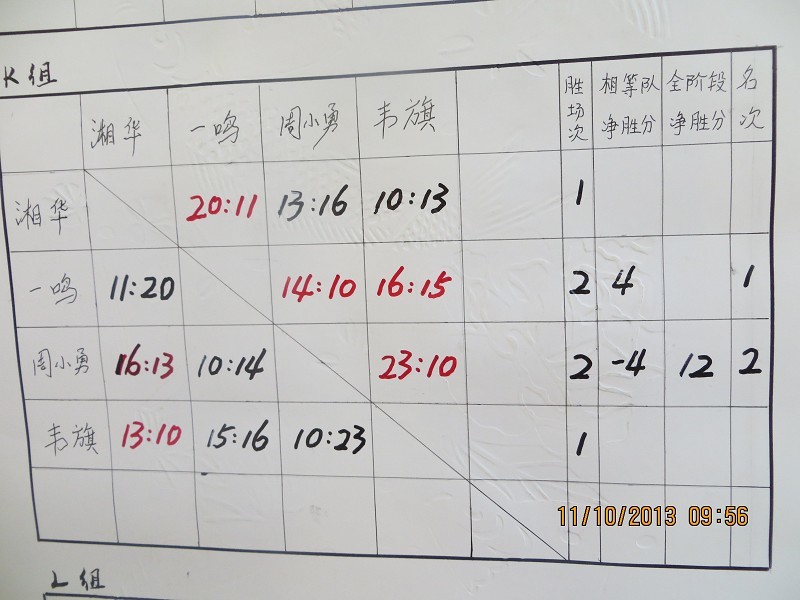 K组
湘华 一鸣 周小勇 韦旗 胜场次 相等队净胜分 全阶段净胜分 名次
湘华 20:11 13:16 10:13 1
一鸣 11:20 14:10 16:15 2 4 1
周小勇 16:13 10:14 23:10 2 -4 12 2
韦旗 13:10 15:16 10:23 1
11/10/2013 09:56
L组